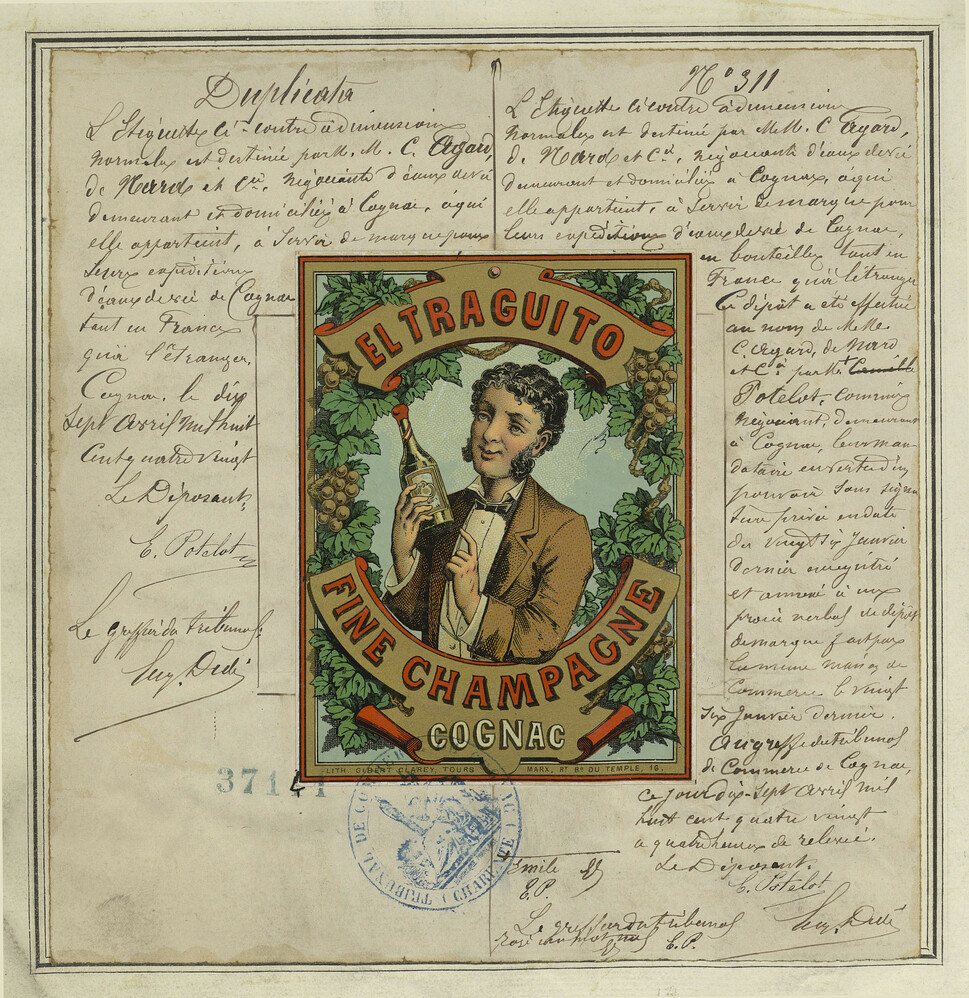 Duplicata
L'Etiquette ci-contre à dimensions
normales est destinée par M. M. C. Agard,
de Nard et Cie, Négociants d'eaux de vie
demeurant et domiciliés à Cognac, à qui
elle appartient, à Servir de marque pour
leurs expéditions
d'eaux de vie de Cognac
tant en France
qu'à l'étranger.
Cognac, le dix
Sept Avril mil huit
cent quatre vingt
Le Déposant,
E. Potelot
Le greffier du tribunal
Eug. Dedé
No 311
L'Etiquette ci contre à dimensions
normales est destinée par M.M. C. Agard,
de Nard et Cie, négociants d'eaux de vie
demeurant et domiciliés à Cognac, à qui
elle appartient, à Servir de marque pour
leurs expéditions d'eaux de vie de Cognac,
en bouteilles tant en
France qu'à l'étranger
Ce dépôt a été effectué
au nom de MM.
C. Agard, de Nard
et Cie par M.
Potelot, commis
négociant, demeurant
à Cognac, leur man
dataire en vertu d'un
pouvoir sous signa
ture privée en date
du vingt six Janvier
dernier enregistré
et annexé à un
procès verbal de dépôt
de marque fait par
la même maison de
Commerce le vingt
six Janvier dernier.
Au greffe du tribunal
de Commerce de Cognac,
ce jour dix-sept Avril mil
huit cent quatre vingt
à quatre heures de relevée.
Le Déposant.
E. Potelot
Eug. Dedé
EL TRAGUITO
FINE CHAMPAGNE
COGNAC
LITH. OLBERT CLAREY, TOURS
MARX, RT Bd DU TEMPLE, 16.
371
TRIBUNAL DE COMMERCE
CHARENTE
Emile
E.P.
Le greffier du tribunal
E.P.